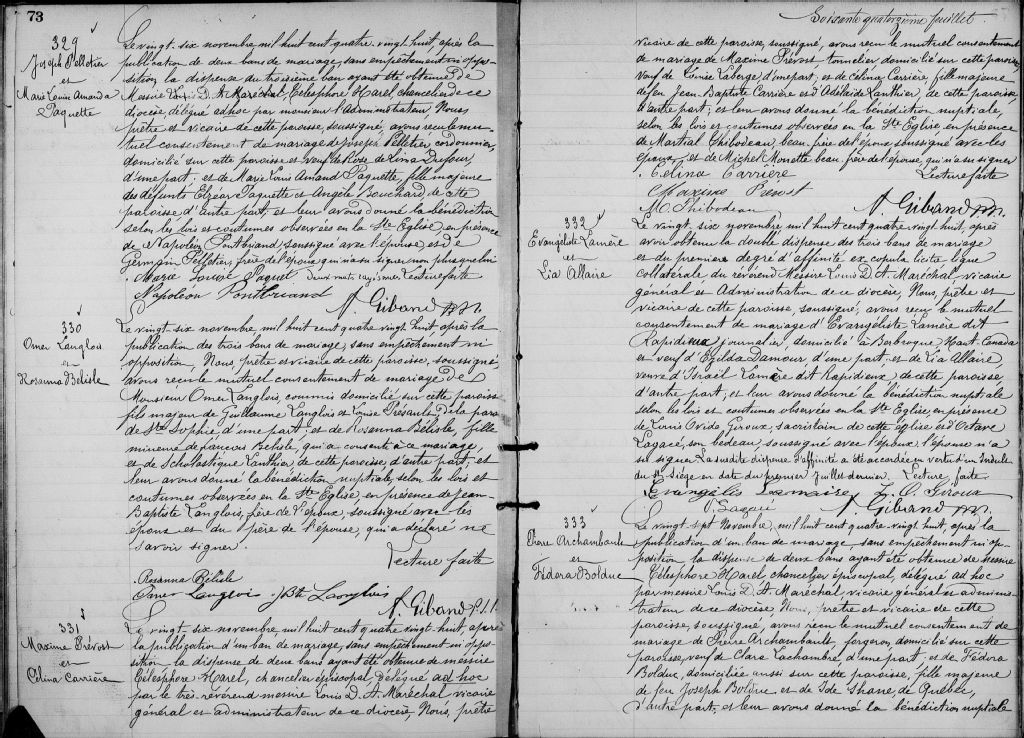 73
329
Joseph Pelletier
et
Marie Louise Amanda
Paquette
Le vingt six novembre, mil huit cent quatre vingt huit, après la
publication de deux bans de mariage, sans empêchement ni oppo-
sition, la dispense du troisième ban ayant été obtenue de
Messire Louis D. A. Maréchal, Télesphore Harel chancelier de ce
diocèse, délégué ad hoc par monsieur l'administrateur, Nous
prêtre et vicaire de cette paroisse, soussigné, avons reçu le mu-
tuel consentement de mariage de Joseph Pelletier, cordonnier,
domicilié sur cette paroisse et veuf de Rose de Lima Dufour,
d'une part, et de Marie Louis Amand Paquette, fille majeure
des défunts Elzéar Paquette et Angèle Bouchard de cette
paroisse d'autre part; et leur avons donné la bénédiction
selon les lois et coutumes observées en la Ste Eglise, en présence
de Napoléon Pontbriand soussigné avec l'épouse et de
Germain Pelletier, frère de l'époux qui n'a su signer non plus que lui
Marie Louise Paquet deux mots rayés nuls Lecture faite
Napoléon Pontbriand
N. Giband ptr.
330
Omer Langlois
et
Rosanna Bélisle
Le vingt six novembre, mil huit cent quatre vingt huit, après la
publication des trois bans de mariage, sans empêchement ni
opposition, Nous, prêtre et vicaire de cette paroisse, soussigné,
avons reçu le mutuel consentement de mariage de
Monsieur Omer Langlois, commis domicilié sur cette paroisse
fils majeur de Guillaume Langlois et Louise Présault, de la paroisse
de Ste Sophie d'une part, et de Rosanna Bélisle, fille
mineure de François Bélisle, qui a consenti à ce mariage,
et de Scholastique Lanthier, de cette paroisse, d'autre part; et
leur avons donné la bénédiction nuptiale, selon les lois et
coutumes observées en la Ste Eglise, en présence de Jean
Baptiste Langlois, frère de l'époux, soussigné avec les
époux et du père de l'épouse, qui a déclaré ne
savoir signer.
Lecture faite
Rosanna Bélisle
Omer Langlois J. Bte Langlois
N. Giband p.s.s.
331
Maxime Prévost
et
Célina Carrière
Le vingt six novembre, mil huit cent quatre vingt huit, après
la publication d'un ban de mariage, sans empêchement ni oppo-
sition la dispense de deux bans ayant été obtenue de messire
Télesphore Harel, chancelier épiscopal, délégué ad hoc
par le très révérend messire Louis D. A. Maréchal vicaire
général et administrateur de ce diocèse, Nous, prêtre
Soixante quatorzième feuillet.
vicaire de cette paroisse, soussigné, avons reçu le mutuel consentement
de mariage de Maxime Prévost, tonnelier domicilié sur cette paroisse
Veuf de Laberge d'une part, et de Célina Carrière, fille majeure
de feu Jean Baptiste Carrière et d'Adélaïde Lanthier, de cette paroisse
d'autre part; et leur avons donné la bénédiction nuptiale,
selon les lois et coutumes observées en la Ste Eglise en présence
de Martial Thibodeau, beau-frère de l'époux soussigné avec les
époux, et de Michel Monette beau-frère de l'épouse, qui n'a su signer
Célina Carrière Lecture faite
Maxime Prevost
M. Thibodeau N. Giband ptr.
332
Evangéliste Lamère
et
Lia Allaire
Le vingt six novembre mil huit cent quatre vingt huit, après
avoir obtenu la double dispense des trois bans de mariage
et du premier degré d'affinité ex copula licite ligne
collatérale du révérend Messire Louis D. A. Maréchal, vicaire
général et Administration de ce diocèse, Nous, prêtre et
vicaire de cette paroisse, soussigné, avons reçu le mutuel
consentement de mariage d'Evangéliste Lamère dit
Rapidieux journalier, domicilié à Haut-Canada
et veuf d'Exilda Damour d'une part, et de Lia Allaire
veuve d'Israël Lamère dit Rapidieux de cette paroisse,
d'autre part; et leur avons donné la bénédiction nuptiale
selon les lois et coutumes observées en la Ste Eglise, en présence
de Louis Ovide Giroux, sacristain de cette église et d'Octave
Lagacé, son bedeau soussigné avec l'époux l'épouse n'a
su signer. La susdite dispense d'affinité a été accordée en vertu d'un Indult
du St Siège en date du premier Juillet dernier. Lecture faite
Evangélis Lamaire L. O. Giroux
O. Lagacé N. Giband ptr.
333
Pierre Archambault
et
Fédora Bolduc
Le vingt sept Novembre, mil huit cent quatre vingt huit, après la
publication d'un ban de mariage, sans empêchement ni op-
position, la dispense de deux bans ayant été obtenue de messire
Télesphore Harel chancelier épiscopal, délégué ad hoc
par messire Louis D. A. Maréchal vicaire général et adminis-
trateur de ce diocèse Nous, prêtre et vicaire de cette
paroisse, soussigné, avons reçu le mutuel consentement de
mariage de Pierre Archambault, forgeron, domicilié sur cette
paroisse, veuf de Clara Lachambre d'une part; et de Fédora
Bolduc, domiciliée aussi sur cette paroisse, fille majeure
de feu Joseph Bolduc et de Ide Shane, de Québec,
d'autre part; et leur avons donné la bénédiction nuptiale